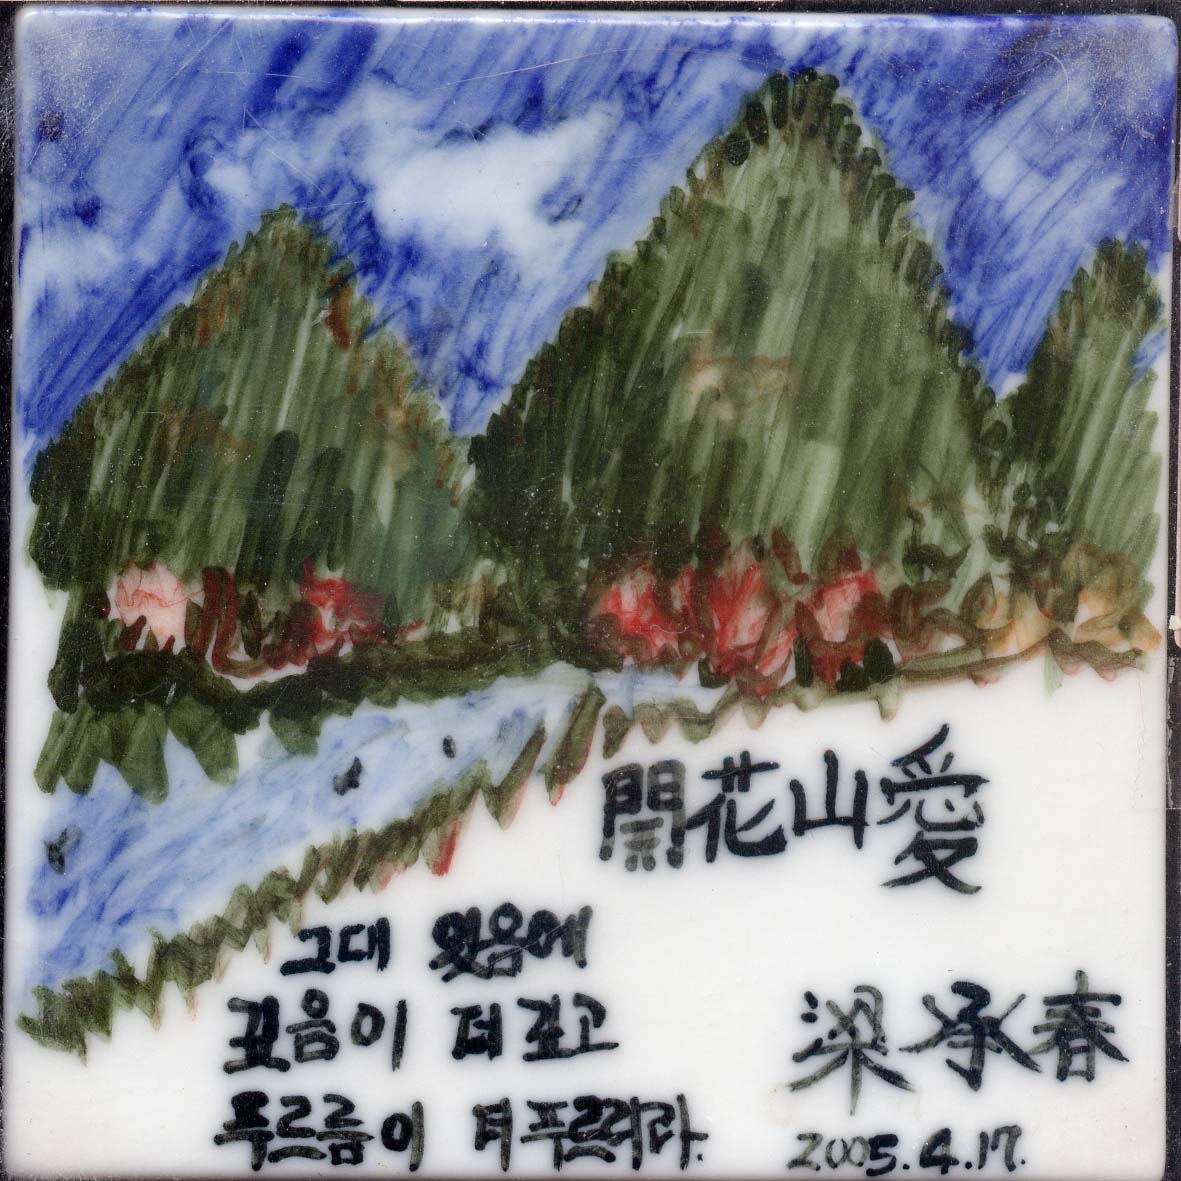 開花山愛
그대 있음에
깊음이 더 깊고
푸르름이 더 푸르러라.
梁承春
2005.4.17.